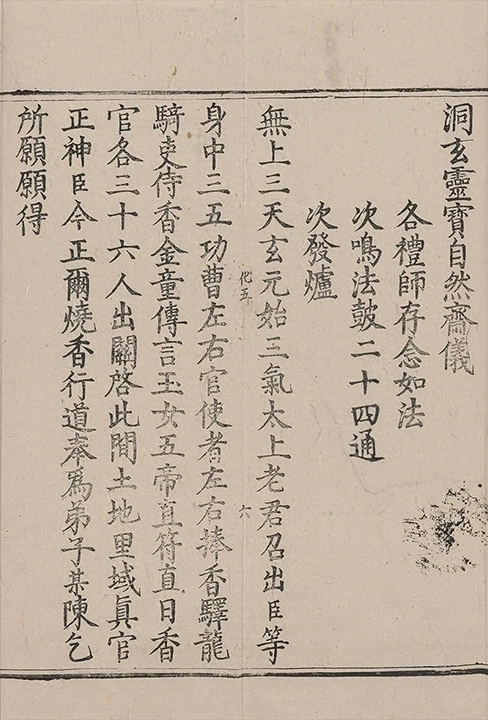 洞玄靈寶自然齋儀
各禮師存念如法
次鳴法鼓二十四通
次發爐
無上三天玄元始三氣太上老君召出臣等
化五
六
身中三五功曹左右官使者左右捧香驛龍
騎吏侍香金童傳言玉女五帝直符直日香
官各三十六人出關啓此間土地里域眞官
正神臣今正爾燒香行道奉爲弟子某陳乞
所願願得